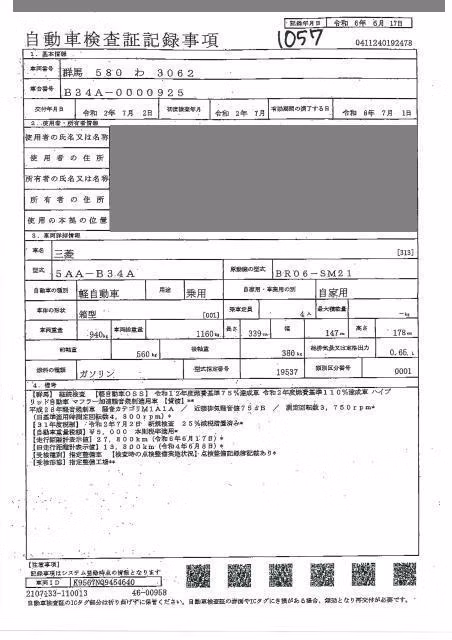 記録年月日 令和 6年 6月 17日
自動車検査証記録事項
1057
0411240192478
1. 基本情報
車両番号 群馬 580 わ 3062
車台番号 B34A-0000925
交付年月日 令和 2年 7月 2日 初度検査年月 令和 2年 7月 有効期間の満了する日 令和 8年 7月 1日
2. 使用者・所有者情報
使用者の氏名又は名称
使用者の住所
所有者の氏名又は名称
所有者の住所
使用の本拠の位置
3. 車両詳細情報
車名 三菱 [313]
型式 5AA-B34A 原動機の型式 BR06-SM21
自動車の種別 軽自動車 用途 乗用 自家用・事業用の別 自家用
車体の形状 箱型 [001] 乗車定員 4人 最大積載量 -kg
車両重量 940kg 車両総重量 1160kg 長さ 339cm 幅 147cm 高さ 178cm
前軸重 560kg 後軸重 380kg 総排気量又は定格出力 0.65L
燃料の種類 ガソリン 型式指定番号 19537 類別区分番号 0001
4. 備考
【群馬】 継続検査 【軽自動車OSS】 令和12年度燃費基準75%達成車 令和2年度燃費基準110%達成車 ハイブ
リッド自動車 マフラー加速騒音規制適用車 【貸渡】**
平成28年騒音規制車 騒音カテゴリM1A1A / 近接排気騒音値75dB / 測定回転数3,750rpm*
(旧基準適用時測定回転数4,800rpm)*
【31年度税制】令和2年7月2日 新規検査 25%減税措置済み*
【自動車重量税額】¥5,000 本則税率適用*
【走行距離計表示値】27,800km(令和6年6月17日)*
【旧走行距離計表示値】13,800km(令和4年6月8日)*
【受検種別】指定整備車 【検査時の点検整備実施状況】点検整備記録簿記載あり*
【受検形態】指定整備工場**
【注意事項】
記載事項はシステム登録時点の情報となります
車両ID K9567NQ9454640
2107433-110013 46-00958
自動車検査証のICタグ部分は折り曲げずに保管ください。自動車検査証の券面やICタグにき損がある場合、無効となり再交付が必要です。